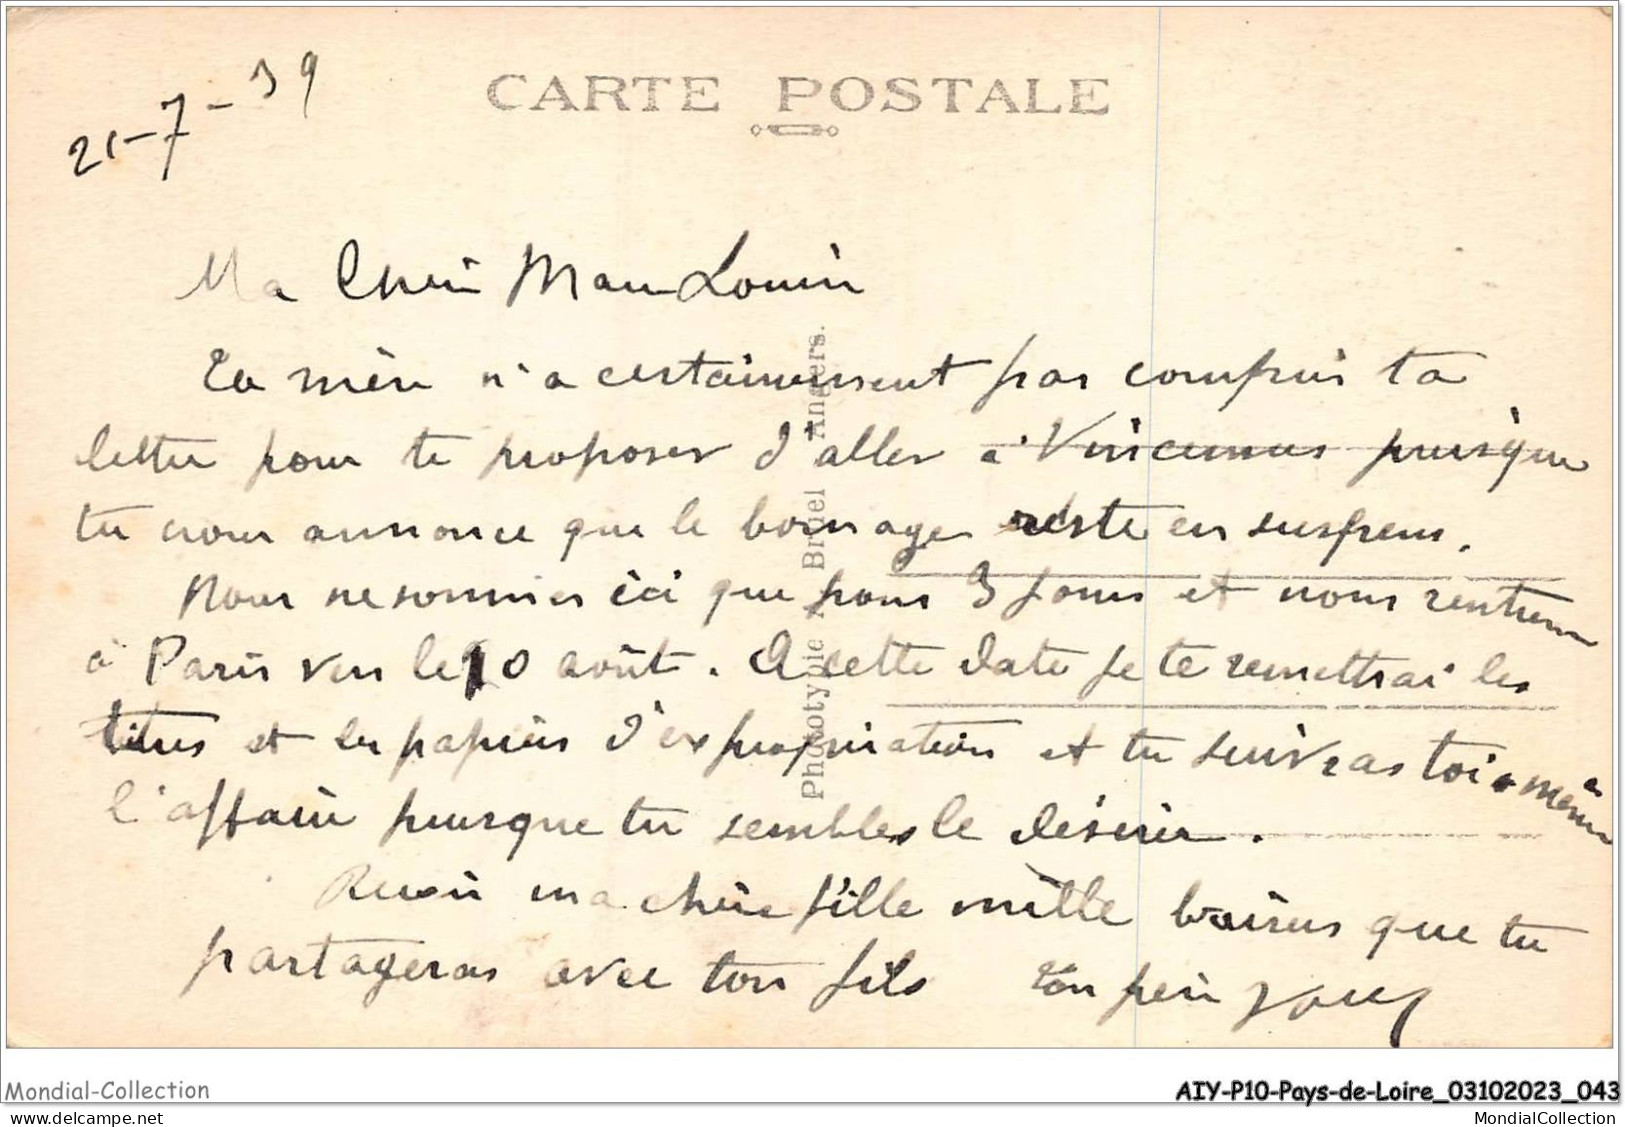 CARTE POSTALE
21-7-39
Ma Chère
Ta mère n'a certainement pas compris ta
lettre pour te proposer d'aller à Vincennes puisque
tu nous annonce que le bornage reste en suspens.
Nous ne sommes ici que pour 3 jours et nous rentrerons
à Paris vers le 10 août. A cette date je te remettrai les
titres et les papiers d'expropriation et tu suivras toi-même
l'affaire puisque tu sembles le désirer.
Reçois ma chère fille mille baisers que tu
partageras avec ton fils Ton père
Phototypie A. Bruel Angers.
Mondial-Collection
AIY-P10-Pays-de-Loire_03102023_043
www.delcampe.net
MondialCollection